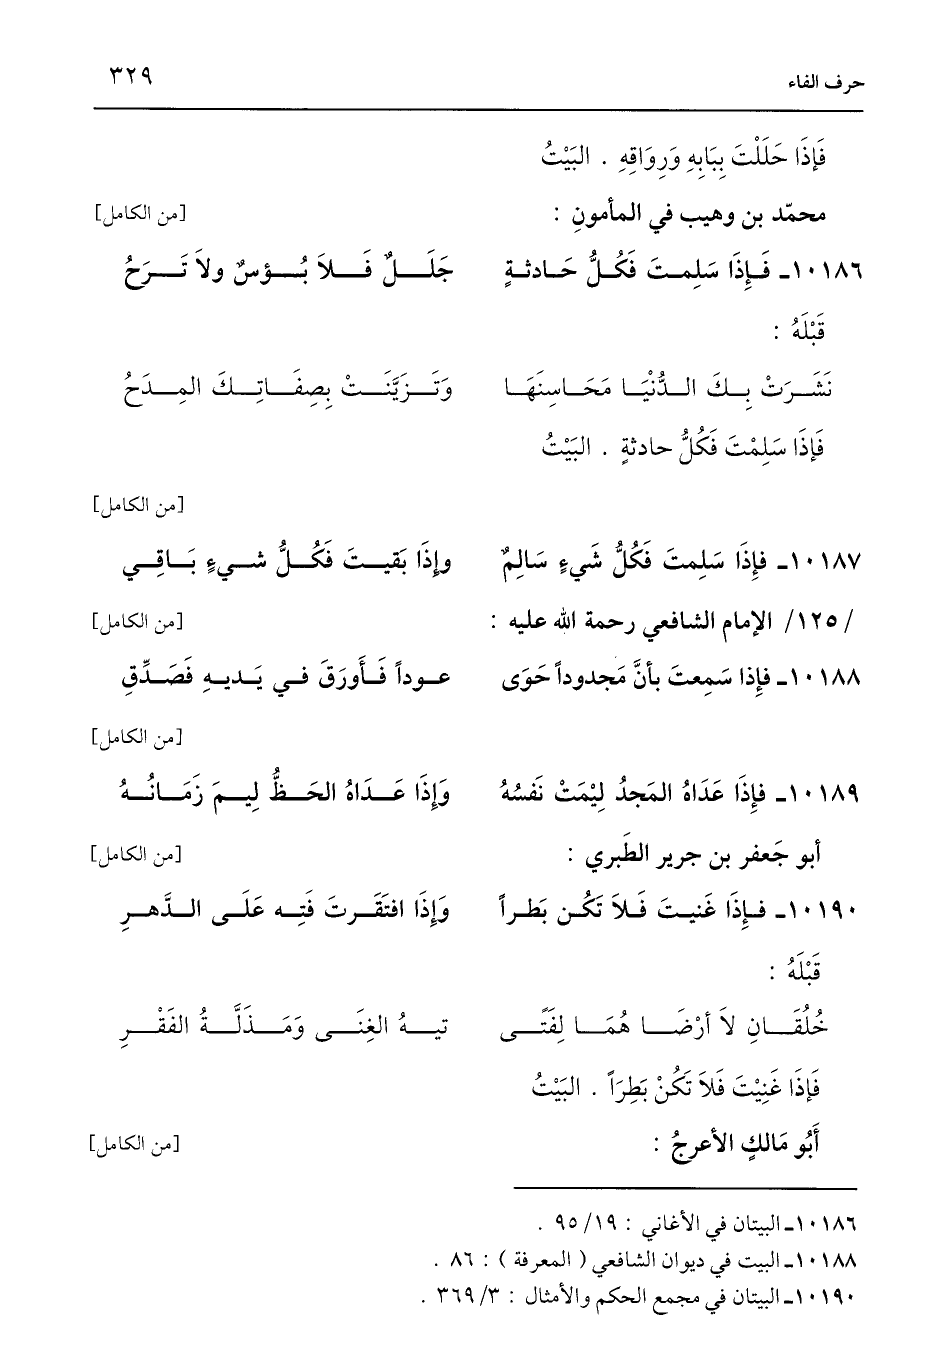 حرف الفاء ٣٢٩
فَإذَا حَلَلْتَ بِبَابِهِ وَرِوَاقِهِ . البَيْتُ
محمّد بن وهيب في المأمونِ : [من الكامل]
١٠١٨٦ـ فَإِذَا سَلِمتَ فَكُلُّ حَادثةٍ جَلَلٌ فَلاَ بُؤسٌ ولاَ تَرَحُ
قَبْلَهُ :
نَشَرَتْ بِكَ الدُّنْيَا مَحَاسِنَهَا وَتَزيَّنَتْ بِصِفَاتِكَ المِدَحُ
فَإذَا سَلِمْتَ فَكُلُّ حادثةٍ . البَيْتُ
[من الكامل]
١٠١٨٧ـ فإِذَا سَلِمتَ فَكُلُّ شَيءٍ سَالِمٌ وإِذَا بَقيتَ فَكُلُّ شيءٍ بَاقِي
/١٢٥/ الإمام الشافعي رحمة الله عليه : [من الكامل]
١٠١٨٨ـ فإِذا سَمِعتَ بأنَّ مَجدوداً حَوَى عوداً فَأَورَقَ في يَديهِ فَصَدِّقِ
[من الكامل]
١٠١٨٩ـ فإِذَا عَدَاهُ المَجدُ لِيْمَتْ نَفسُهُ وَإِذَا عَدَاهُ الحَظُّ لِيمَ زَمَانُهُ
أبو جَعفر بن جرير الطَبري : [من الكامل]
١٠١٩٠ـ فإِذَا غَنيتَ فَلاَ تَكُن بَطراً وَإِذَا افتَقَرتَ فَتِه عَلَى الدَّهرِ
قَبْلَهُ :
خُلُقَانِ لاَ أرْضَا هُمَا لِفَتًى تيهُ الغِنَى وَمَذَلَّةُ الفَقْرِ
فَإذَا غَنِيْتَ فَلاَ تَكُنْ بَطِرَاً . البَيْتُ
أَبُو مَالكٍ الأعرجُ : [من الكامل]
١٠١٨٦ـ البيتان في الأغاني : ١٩/ ٩٥ .
١٠١٨٨ـ البيت في ديوان الشافعي ( المعرفة ) : ٨٦ .
١٠١٩٠ـ البيتان في مجمع الحكم والأمثال : ٣/ ٣٦٩ .